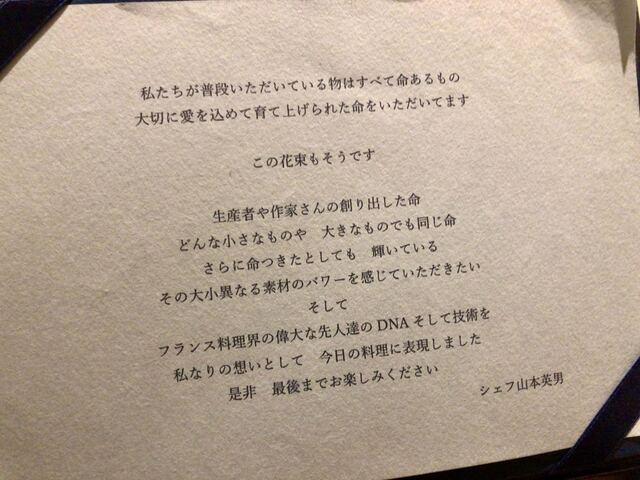 私たちが普段いただいている物はすべて命あるもの
大切に愛を込めて育て上げられた命をいただいてます
この花束もそうです
生産者や作家さんの創り出した命
どんな小さなものや 大きなものでも同じ命
さらに命つきたとしても 輝いている
その大小異なる素材のパワーを感じていただきたい
そして
フランス料理界の偉大な先人達のDNAそして技術を
私なりの想いとして 今日の料理に表現しました
是非 最後までお楽しみください
シェフ山本英男